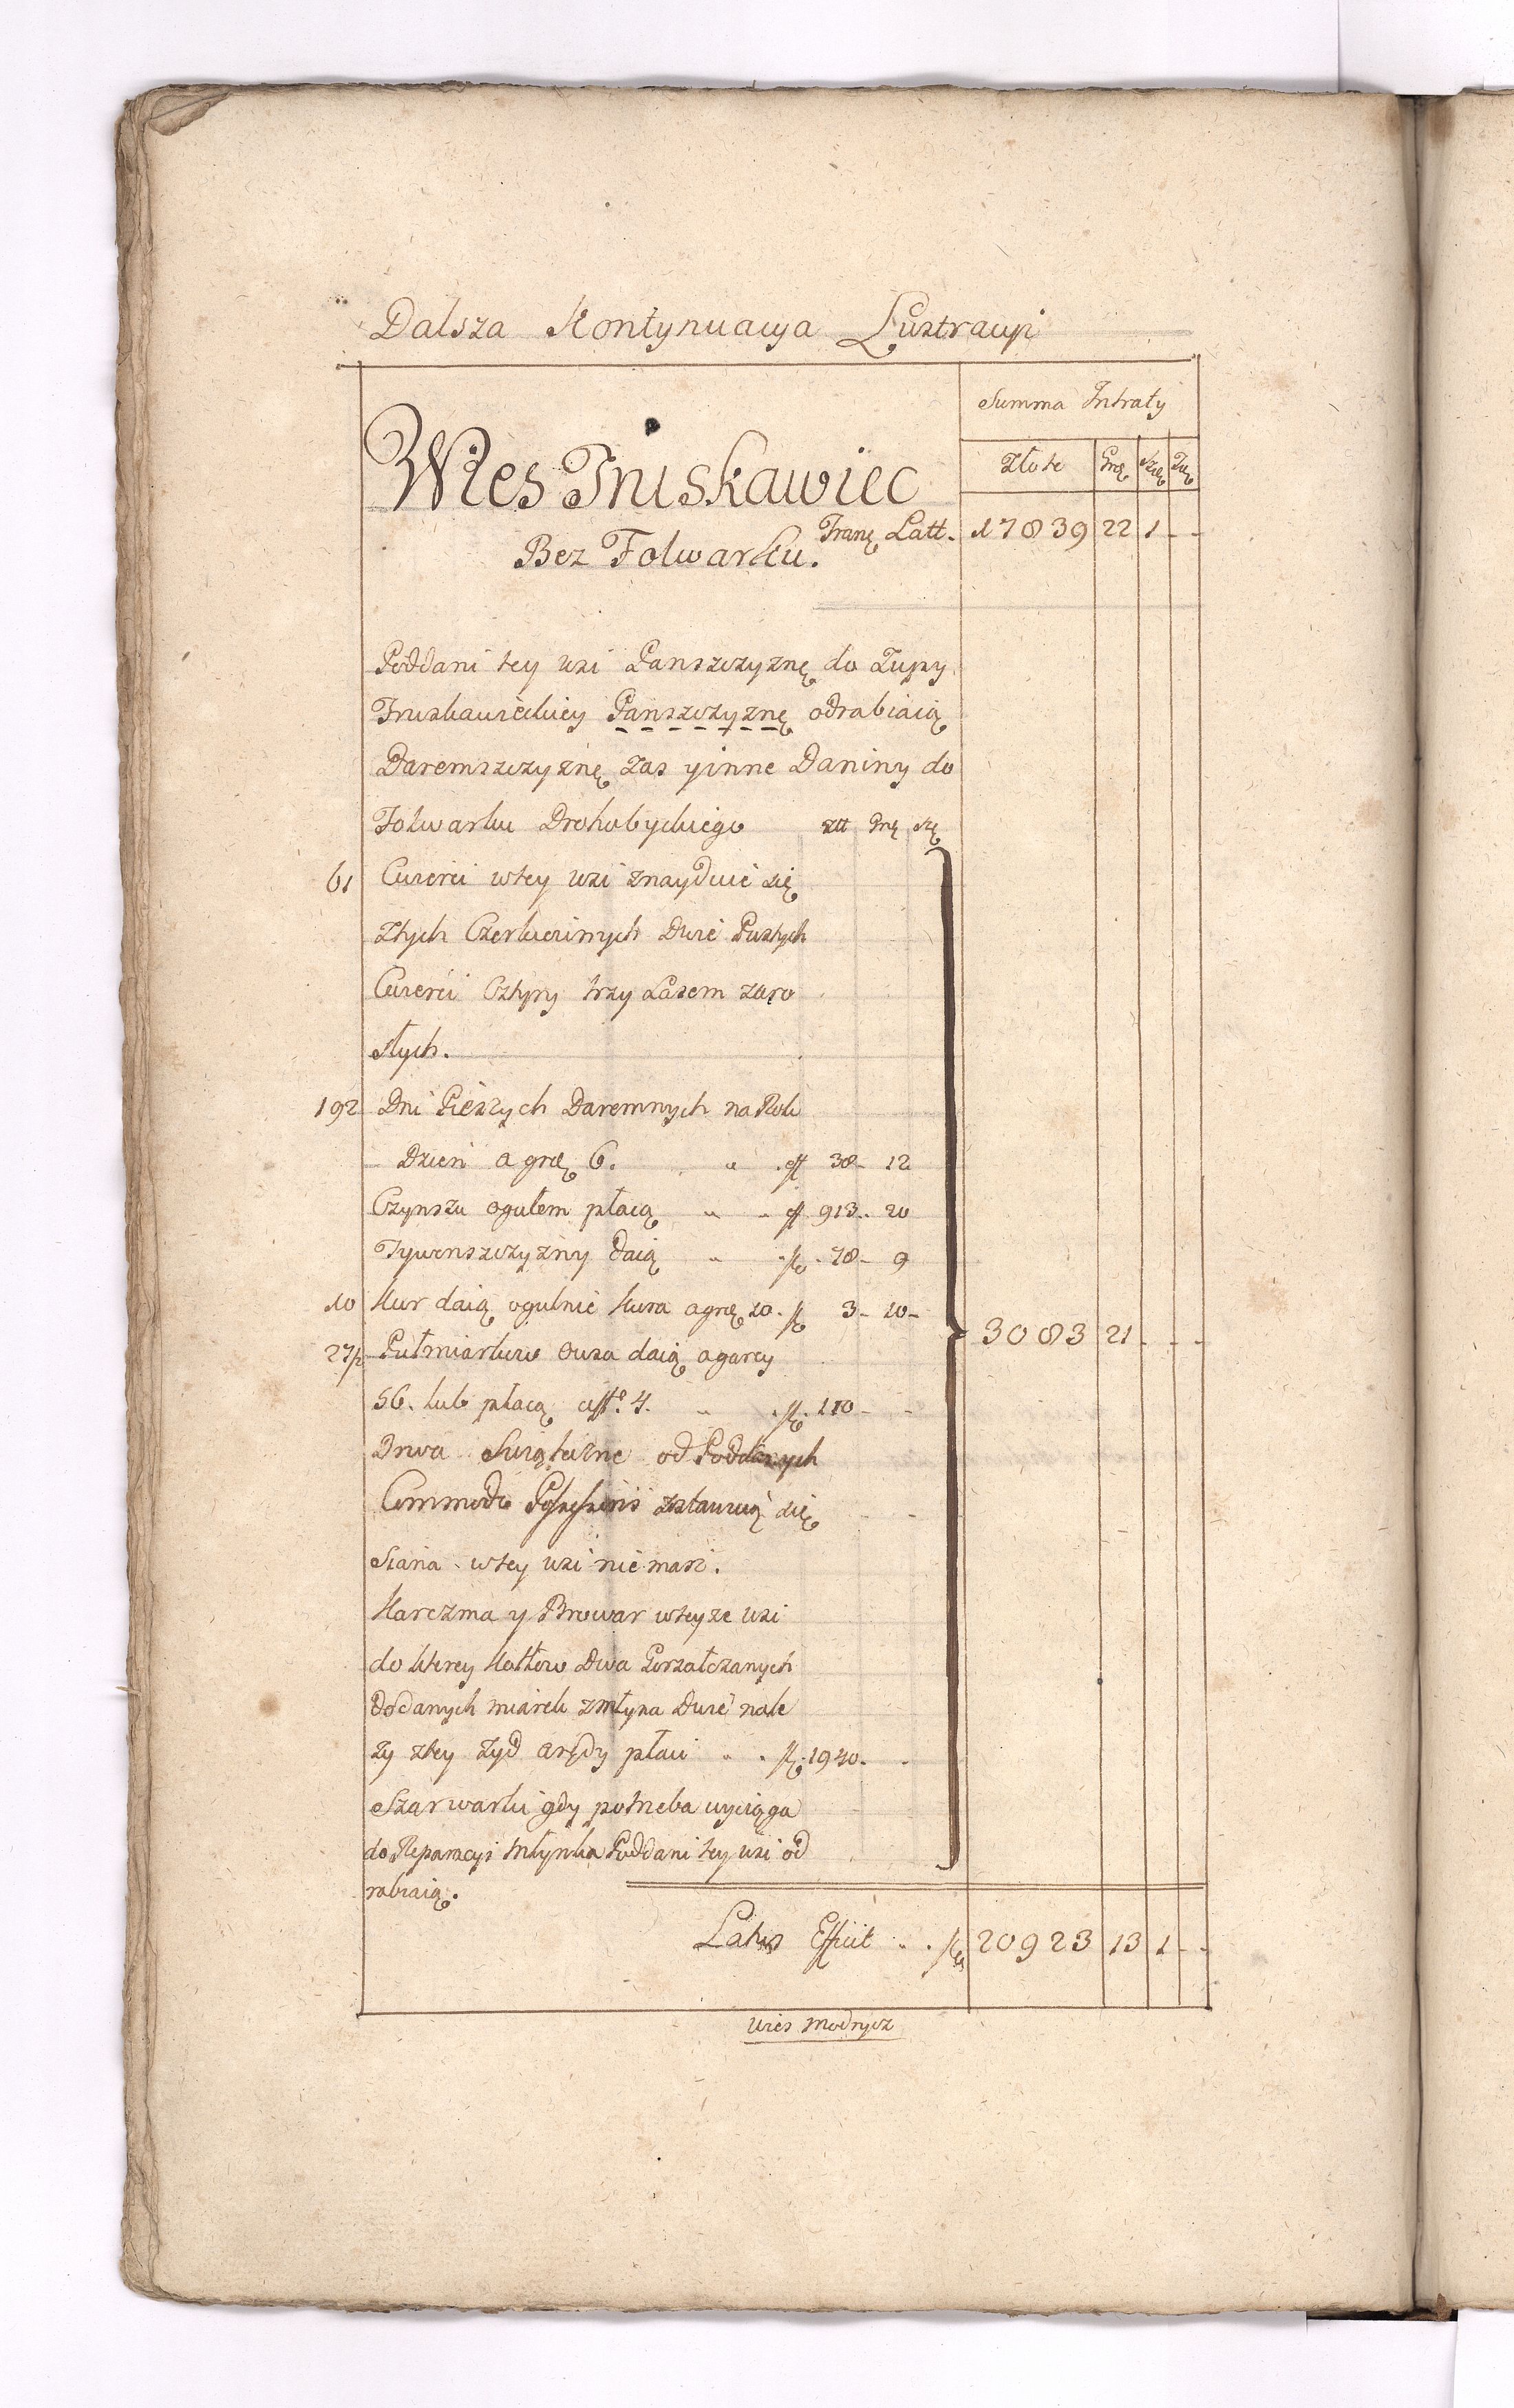 Dalsza Kontynuacya Lustracyi
Summa Intraty
Złote Grę Szlę
Wies Truskawiec
Tranę Latt. 17839 22 1 - -
Bez Folwarku.
Poddani tey wsi Panszczyznę do Zupy
Truskawieckiey Panszczyznę odrabiaią
Daremszczyznę zas yinne Daniny do
Folwarku Drohobyckiego złł Grę Szę
61 Cwierci wtey wsi znayduie się
Ztych Czerkiewnych Dwie Pustych
Cwierci Cztyry trzy Lasem zaro
słych.
192 Dni Pieszych Daremnych na Rok
Dzien a grę 6. " . ff 38 - 12
Czynszu ogułem płacą " " ff 913 .. 20
Tywonszczyzny daią " . fl. 78 - 9
10 Kur daią ogulnie kura a grę 10. fl 3 - 10 -
27½ Pułmiarkow owsa daią a garcy
56. lub płacą a ff° 4. " . fl. 110 - -
Drwa Swiąteczne od Poddanych
Commodo Possessoris zstawuią się
Siana wtey wsi nie masz.
3083 21 - - -
Karczma y Browar wteyze wsi
do ktorey Kotłow Dwa Gorzałczanych
Dodanych miarek zmłyna Dwie nale
zy ztey zyd arędy płaci " . fl. 1940. -
Szarwarki gdy potrzeba wyciąga
do Reparacyi Młynka Poddani tey wsi od
rabiaią.
Latus Efficit .. . fl 20923 13 1 - -
Wies Modrycz